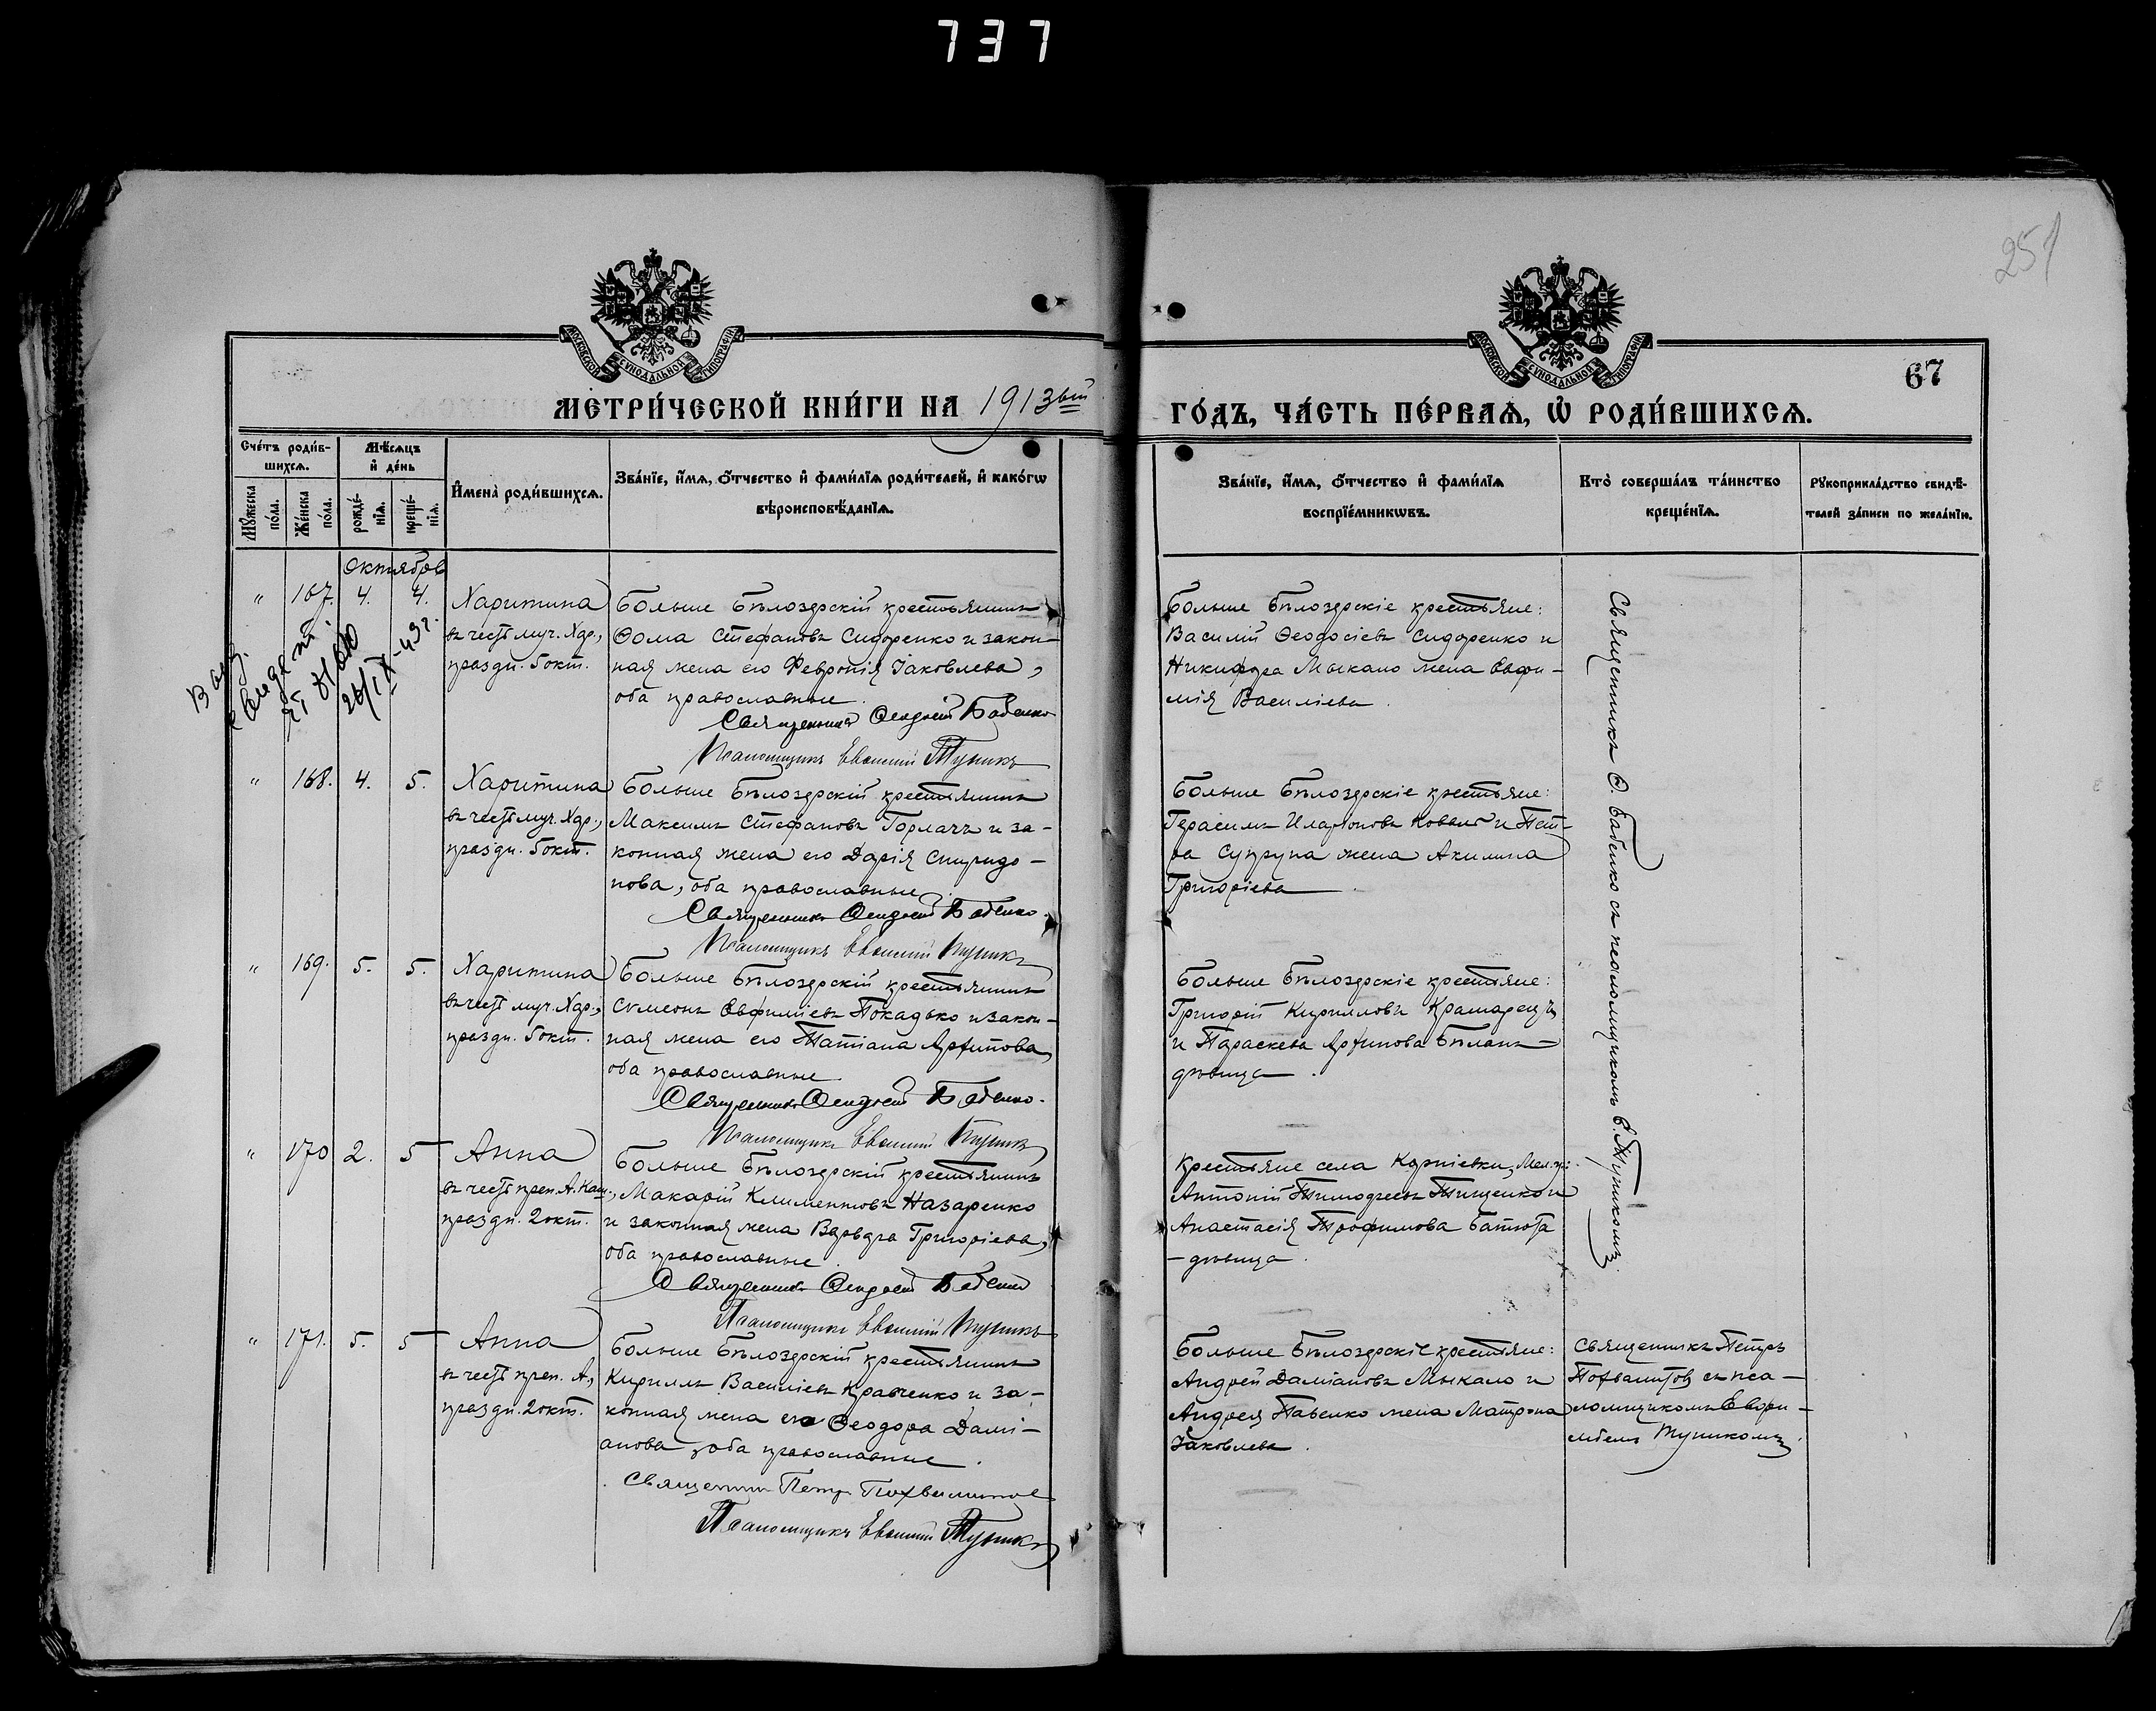 737
251
67
МОСКОВСКОЙ СУНОДАЛЬНОЙ ТИПОГРАФІИ
МОСКОВСКОЙ СУНОДАЛЬНОЙ ТИПОГРАФІИ
МЕТРИ́ЧЕСКОЙ КНИ́ГИ НА 1913ый
ГО́ДЪ, ЧА́СТЬ ПЕ́РВАѦ, Ѡ҆ РОДИ́ВШИХСѦ.
Сче́тъ роди́в-
шихсѧ.
Мѣ́сѧцъ
и҆ де́нь
Мꙋ́жеска по́ла.
Же́нска по́ла.
рожде́-нїѧ.
креще́-нїѧ.
И҆мена̀ роди́вшихсѧ.
Зва́нїе, и҆́мѧ, ѻ҆́тчество и҆ фами́лїѧ роди́телей, и҆ како́гѡ
вѣроисповѣ́данїѧ.
Зва́нїе, и҆́мѧ, ѻ҆́тчество и҆ фами́лїѧ
воспрїе́мникѡвъ.
Кто̀ соверша́лъ та́инство
креще́нїѧ.
Рꙋкоприкла́дство свидѣ́-
телей за́писи по жела́нїю.
Октябрь
" 167. 4. 4.
Харитина
въ честь муч. Хар.,
праздн. 5 окт.
Больше Бѣлозерскій крестьянинъ
Ѳома Стефановъ Сидоренко и закон-
ная жена его Февронія Іаковлева,
оба православные.
Священникъ Ѳеодосій Бабенко
Псаломщикъ Евѳимій Тупикъ
Больше Бѣлозерскіе крестьяне:
Василій Ѳеодосіевъ Сидоренко и
Никифора Мыкало жена Евфи-
мія Василіева.
Священникъ Ѳ. Бабенко съ псаломщикомъ Е. Тупикомъ.
26/IX-43 г.
" 168. 4. 5.
Харитина
въ честь муч. Хар.,
праздн. 5 окт.
Больше Бѣлозерскій крестьянинъ
Максимъ Стефановъ Горлачъ и за-
конная жена его Дарія Спиридо-
нова, оба православные.
Священникъ Ѳеодосій Бабенко.
Псаломщикъ Евѳимій Тупикъ
Больше Бѣлозерскіе крестьяне:
Герасимъ Иларіоновъ Коваль и Пет-
ра Супруна жена Акилина
Григоріева.
" 169. 5. 5.
Харитина
въ честь муч. Хар.,
праздн. 5 окт.
Больше Бѣлозерскій крестьянинъ
Сѵмеонъ Евфиміевъ Покадько и закон-
ная жена его Татіана Архипова,
оба православные
Священникъ Ѳеодосій Бабенко.
Псаломщикъ Евѳимій Тупикъ
Больше Бѣлозерскіе крестьяне:
Григорій Кирилловъ Крамарецъ
и Параскева Архипова
дѣвица.
" 170 2. 5
Анна
въ честь преп. А. Каш.,
праздн. 2 окт.
Больше Бѣлозерскій крестьянинъ
Макарій Климентовъ Назаренко
и законная жена Варвара Григоріева,
оба православные.
Священникъ Ѳеодосій Бабенко
Псаломщикъ Евѳимій Тупикъ
Крестьяне села Мел. у:
Антоній Тимоѳеевъ Тищенко и
Анастасія Трофимова Батюта
-дѣвица.
" 171. 5. 5
Анна
въ честь преп. А.,
праздн. 2 окт.
Больше Бѣлозерскій крестьянинъ
Кириллъ Василіевъ Кравченко и за-
конная жена его Ѳеодора Дамі-
анова, оба православные.
Священникъ Петръ Похвалитовъ
Псаломщикъ Евѳимій Тупикъ
Больше Бѣлозерскіе крестьяне:
Андрей Даміановъ Мыкало и
Андрея Павенко жена Матрона
Іаковлева.
Священникъ Петръ
Похвалитовъ съ пса-
ломщикомъ Евѳи-
міемъ Тупикомъ.